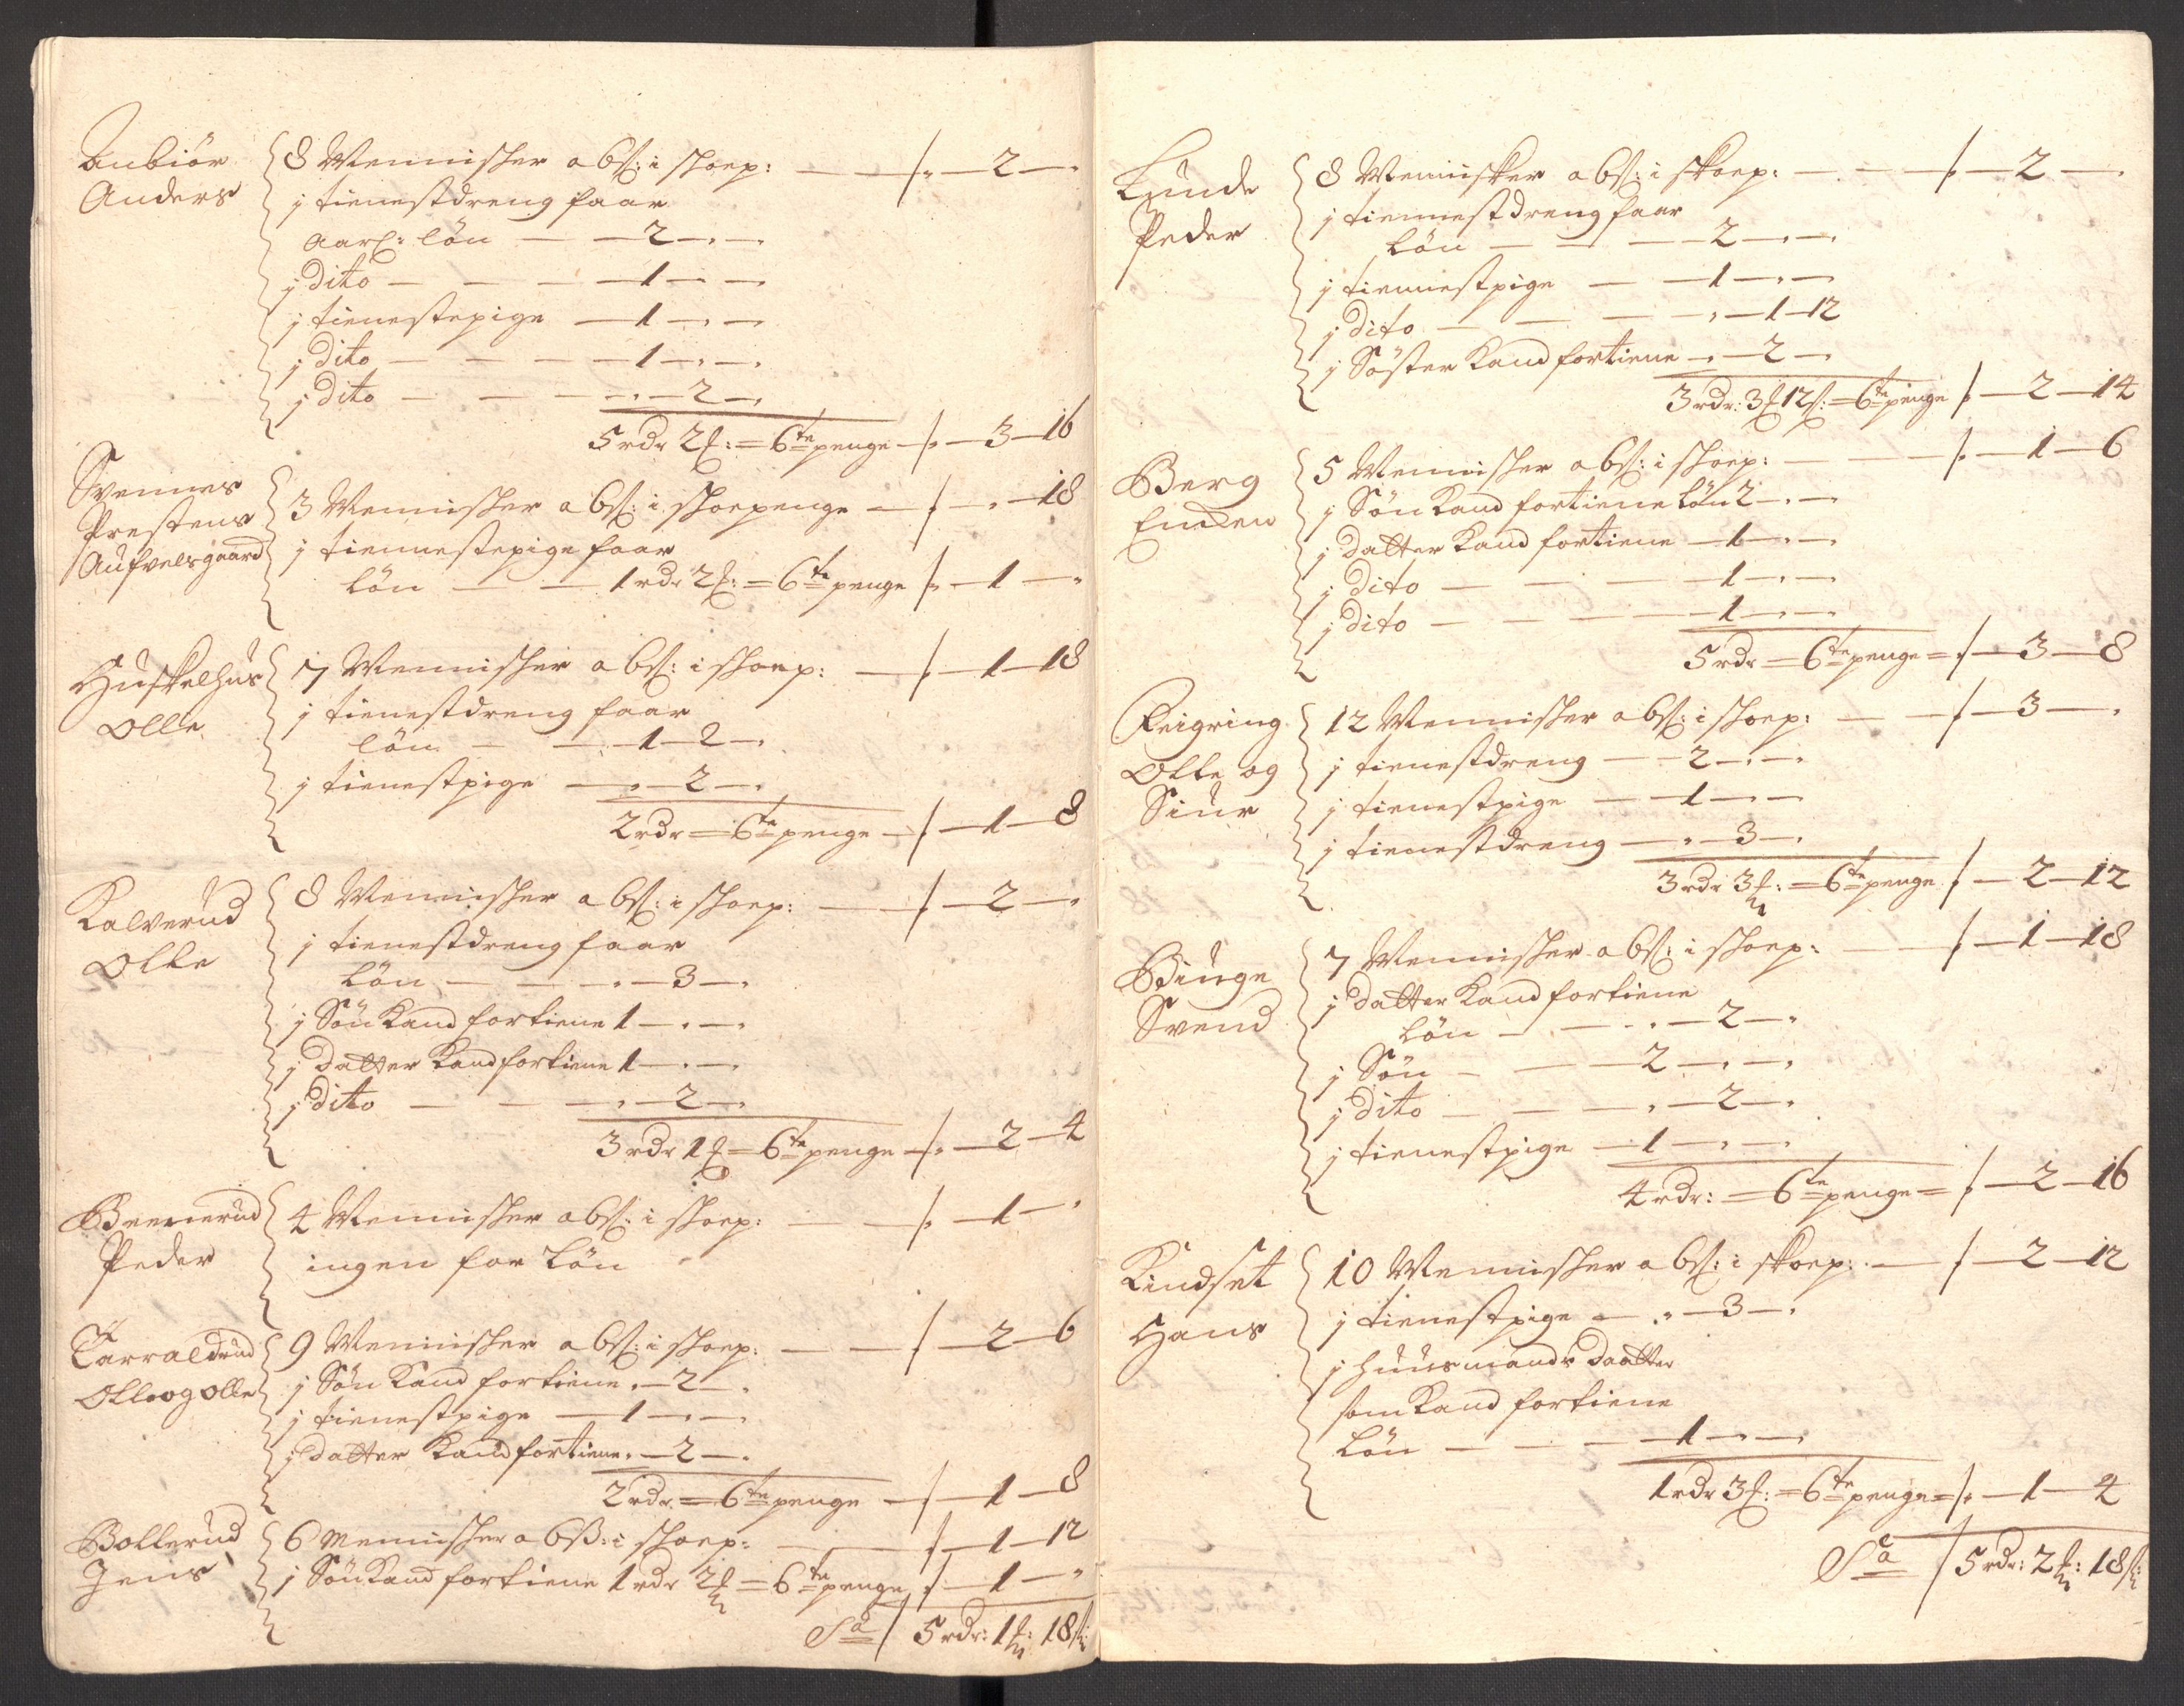 8 Mennisker a 6s: i skoep: — — /. — 2 — .
Anbiör
Anders
j tienestdreng faar
aarl: lön — — 2 — . —
j dito — — — 1 — . —
j tienestepige — 1 — . —
j dito — — — 1 — . —
j dito — — — . — 2 — .
5 rdr 2f: = 6te penge — /. — 3 — 16
Svennes
Prestens
Aufvelsgaard
3 Mennisker a 6s: i skoepenge — /. — . — 18
j tiennestepige faar
lön — — 1 rdr 2f: = 6te penge /. — 1 — .
Huskelhus
Olle
7 Mennisker a 6s: i skoep: — /. — 1 — 18
j tienestdreng faar
lön — — 1 — 2 — .
j tienestpige — . — 2 — .
2 rdr = 6te penge — /. — 1 — 8
Kalverud
Olle
8 Mennisker a 6s: i skoep: — /. — 2 — .
j tienestdreng faar
lön — — . — 3 — .
j Sön kand fortiene 1 — . —
j datter kand fortiene 1 — . —
j dito — — — . — 2 — .
3 rdr 1f = 6te penge — /. — 2 — 4
Peder
4 Mennisker a 6s: i skoep: — — /. — 1 — .
ingen for lön
Tarraldrud
Olle og Olle
9 Mennisker a 6s: i skoep: — — /. — 2 — 6
j Sön kand fortiene . — 2 — .
j tienestpige — 1 — . —
j datter kand fortiene . — 2 — .
2 rdr = 6te penge — /. — 1 — 8
Bollerud
Jens
6 Mennisker a 6s: i skoep: — /. — 1 — 12
j Sön kand fortiene 1 rdr 2f = 6te penge /. — 1 — .
Sa / 5 rdr: 1f: 18s:
Lunde
Peder
8 Mennisker a 6s: i skoep: — — /. — 2 — .
j tiennestdreng faar
lön — — — 2 — . —
j tiennestpige — — 1 — . —
j dito — — — . — 1 — 12
j Söster kand fortiene . — 2 — .
3 rdr: 3f 12s: = 6te penge /. — 2 — 14
Berg
5 Mennisker a 6s: i skoep: — — /. — 1 — 6
j Sön kand fortiene lön 2 — . —
j datter kand fortiene — 1 — . —
j dito — — — 1 — . —
j dito — — — 1 — . —
5 rdr = 6te penge = /. — 3 — 8
Reigring
Olle og
Siur
12 Mennisker a 6s: i skoep: — — /. — 3 — .
j tienestdreng — — 2 — . —
j tienestpige — — 1 — . —
j tienestdreng — . — 3 — .
3 rdr 3f: = 6te penge /. — 2 — 12
Binge
Svend
7 Mennisker a 6s: i skoep: — — /. — 1 — 18
j datter kand fortiene
lön — — . — 2 — .
j Sön — — — 2 — . —
j dito — — — . — 2 — .
j tienestpige — 1 — . —
4 rdr: = 6te penge = /. — 2 — 16
Kindset
Hans
10 Mennisker a 6s: i skoep: — /. — 2 — 12
j tienestpige — . — 3 — .
j huusmands daatter
som kand fortiene
lön — — — 1 — . —
1 rdr 3f: = 6te penge = /. — 1 — 4
Sa / 5 rdr: 2f: 18s: